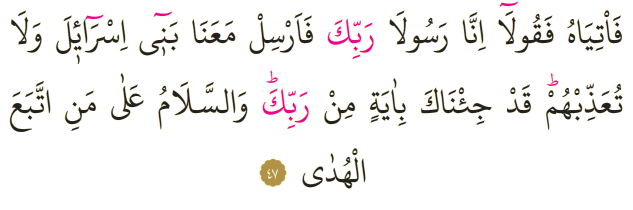 فَاْتِيَاهُ فَقُولَٓا اِنَّا رَسُولَا رَبِّكَ فَاَرْسِلْ مَعَنَا بَنٖٓى اِسْرَٓائٖلَ وَلَا
تُعَذِّبْهُمْؕ قَدْ جِئْنَاكَ بِاٰيَةٍ مِنْ رَبِّكَؕ وَالسَّلَامُ عَلٰى مَنِ اتَّبَعَ
الْهُدٰى ٤٧